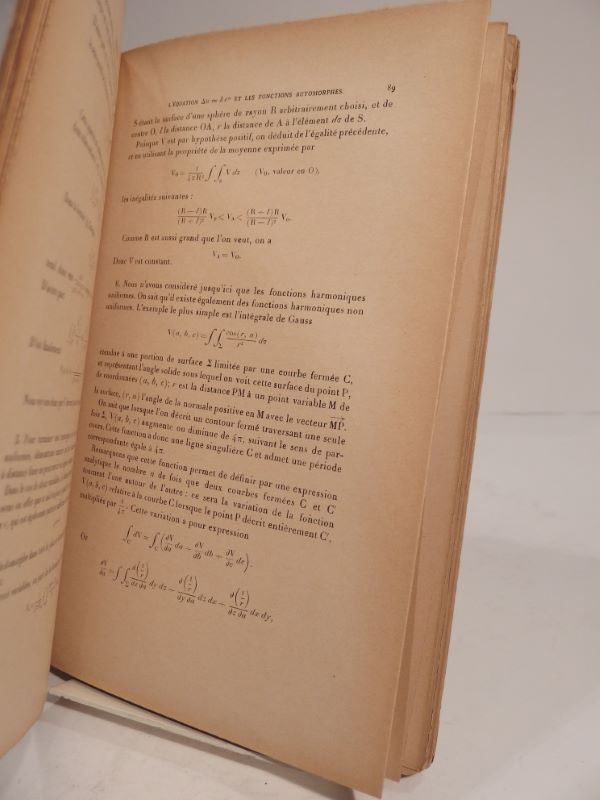 L'ÉQUATION Δu = k eᵘ ET LES FONCTIONS AUTOMORPHES. 89
S étant la surface d'une sphère de rayon R arbitrairement choisi, et de
centre O, l la distance OA, r la distance de A à l'élément dσ de S.
Puisque V est par hypothèse positif, on déduit de l'égalité précédente,
et en utilisant la propriété de la moyenne exprimée par
V₀ = 1/4πR² ∫∫ₛ V dσ (V₀, valeur en O).
les inégalités suivantes :
(R − l)R/(R + l)² V₀ < V_A < (R + l)R/(R − l)² V₀.
Comme R est aussi grand que l'on veut, on a
V_A = V₀.
Donc V est constant.
6. Nous n'avons considéré jusqu'ici que les fonctions harmoniques
uniformes. On sait qu'il existe également des fonctions harmoniques non
uniformes. L'exemple le plus simple est l'intégrale de Gauss
V(a, b, c) = ∫∫_Σ cos(r, n)/r² dσ
étendue à une portion de surface Σ limitée par une courbe fermée C,
et représentant l'angle solide sous lequel on voit cette surface du point P,
de coordonnées (a, b, c); r est la distance PM à un point variable M de
la surface, (r, n) l'angle de la normale positive en M avec le vecteur MP.
On sait que lorsque l'on décrit un contour fermé traversant une seule
fois Σ, V(a, b, c) augmente ou diminue de 4π, suivant le sens de par-
cours. Cette fonction a donc une ligne singulière C et admet une période
correspondante égale à 4π.
Remarquons que cette fonction permet de définir par une expression
analytique le nombre n de fois que deux courbes fermées C et C'
tournent l'une autour de l'autre : ce sera la variation de la fonction
V(a, b, c) relative à la courbe C lorsque le point P décrit entièrement C',
multipliée par 1/4π. Cette variation a pour expression
∫_C' dV = ∫_C' (∂V/∂a da + ∂V/∂b db + ∂V/∂c dc).
Or
∂V/∂a = ∫∫_Σ ∂(1/r)/∂x ∂a dy dz + ∂(1/r)/∂y ∂a dz dx + ∂(1/r)/∂z ∂a dx dy,